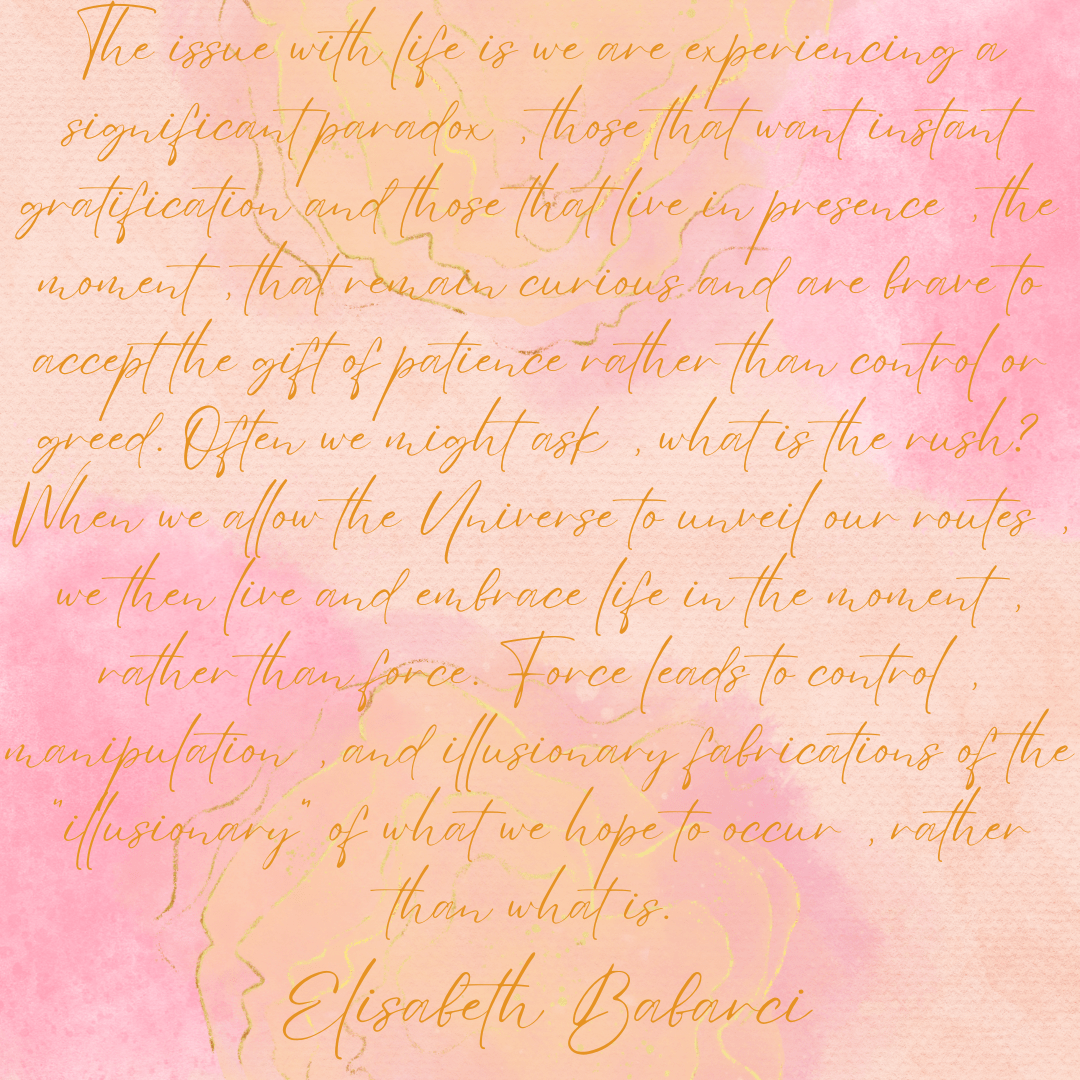 The issue with life is we are experiencing a
significant paradox , those that want instant
gratification and those that live in presence , the
moment , that remain curious and are brave to
accept the gift of patience rather than control or
greed. Often we might ask , what is the rush?
When we allow the Universe to unveil our routes ,
we then live and embrace life in the moment ,
rather than force. Force leads to control ,
manipulation , and illusionary fabrications of the
"illusionary" of what we hope to occur , rather
than what is.
Elisabeth Babarci